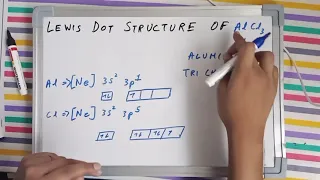 LEWIS DOT STRUCTURE OF AlCl3
ALUMI
TRI CH
Al ⇒ [Ne] 3s² 3p¹
↑↓ ↑
Cl ⇒ [Ne] 3s² 3p⁵
↑↓ ↑↓ ↑↓ ↑